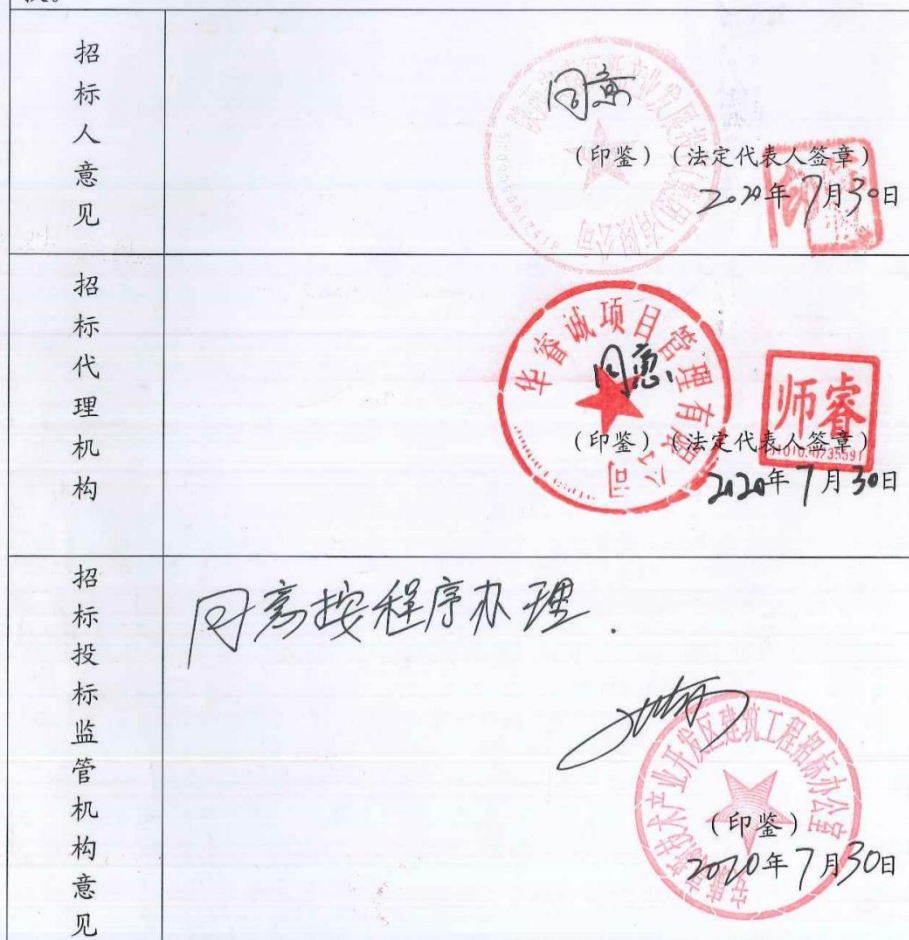 招标人意见
同意
(印鉴)(法定代表人签章)
2020年7月30日
招标代理机构
华睿诚项目管理有限公司
同意
师睿
(印鉴)(法定代表人签章)
2020年7月30日
招标投标监管机构意见
同意按程序办理.
技术产业开发区建筑工程招标办公室
(印鉴)
2020年7月30日